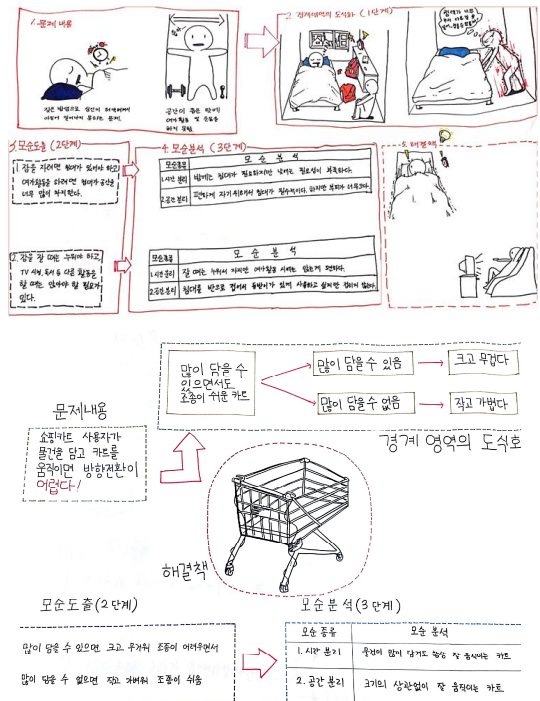 1. 문제 내용
공간이 좁은 탓에
여가활동 및 운동을
하지 못함.
2. 경계영역의 도식화 (1단계)
3. 모순도출 (2단계)
1. 잠을 자려면 침대가 있어야 하고
여가활동을 하려면 침대가 공간을
너무 많이 차지한다.
2. 잠을 잘 때는 누워야 하고,
TV 시청, 독서 등 다른 활동을
할 때는 앉아야 할 필요가
있다.
4. 모순분석 (3단계)
모순종류 모순 분석
1. 시간 분리 밤에는 침대가 필요하지만 낮에는 필요성이 부족하다.
2. 공간 분리 편하게 자기 위해서 침대가 필수적이다. 하지만 부피가 너무 크다.
모순종류 모순 분석
1. 시간 분리 잘 때는 누워서 자지만 여가활동 시에는 앉는게 편하다.
2. 공간 분리 침대를 반으로 접어서 등받이가 있게 사용하고 싶지만 접히지 않는다.
5. 해결책
많이 담을 수
있으면서도
조종이 쉬운 카트
많이 담을 수 있음
크고 무겁다
많이 담을 수 없음
작고 가볍다
경계 영역의 도식화
문제내용
쇼핑카트 사용자가
물건을 담고 카트를
움직이면 방향전환이
어렵다!
해결책
모순도출(2단계)
많이 담을 수 있으면 크고 무거워 조종이 어려우면서
많이 담을 수 없으면 작고 가벼워 조종이 쉬움
모순분석(3단계)
모순 종류 모순 분석
1. 시간 분리 물건이 많이 담겨도 항상 잘 움직이는 카트
2. 공간 분리 크기의 상관없이 잘 움직이는 카트